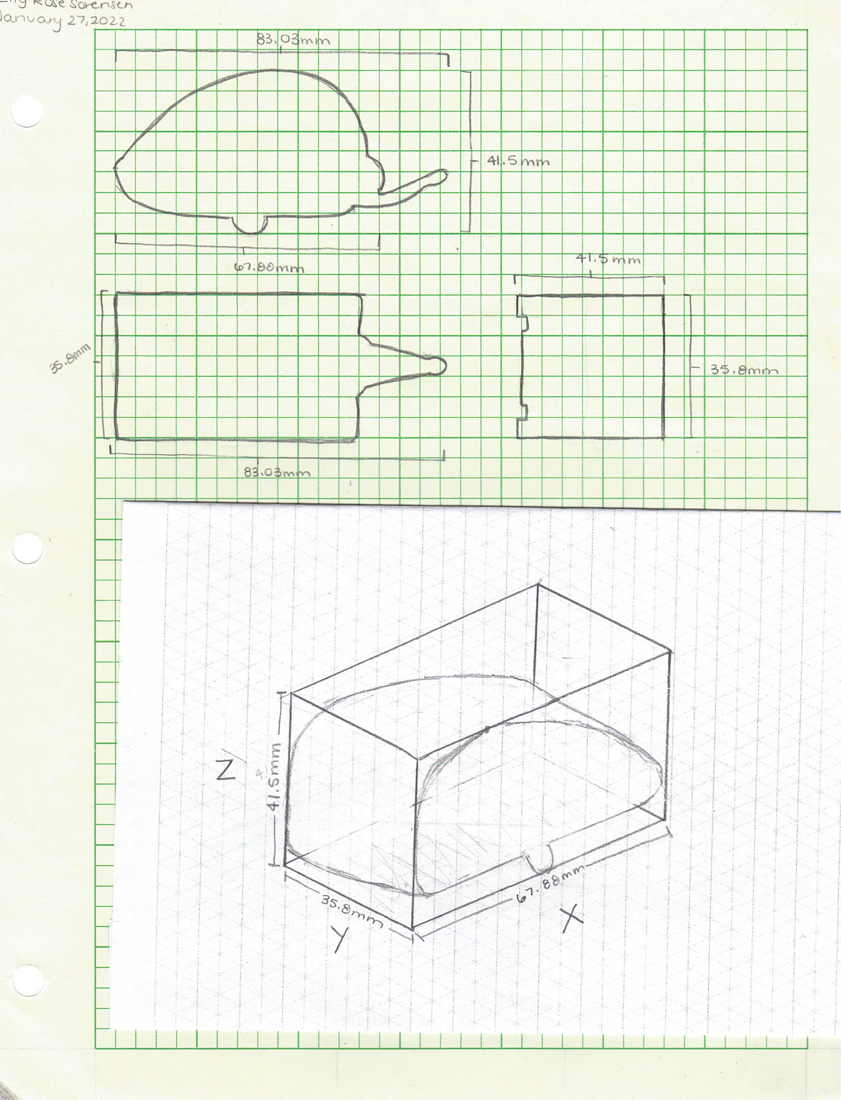 Rose Sorensen
January 27, 2022
83.03mm
41.5mm
67.88mm
41.5mm
35.8mm
35.8mm
83.03mm
Z
41.5mm
35.8mm
67.88mm
Y
X